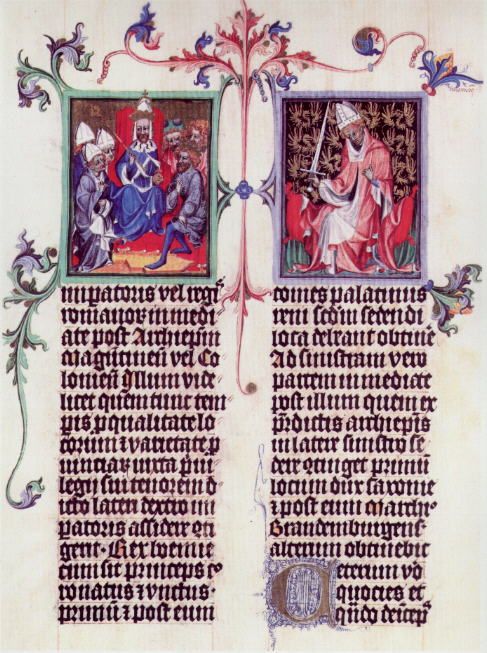 imꝑatoris vel regꝭ
romanoꝝ inmedi
ate post Archiepm̄
Maguntineñ vel Co
lonieñ Illum vide
licet quem tunc tem
pis ꝓ qualitate lo
corum ⁊ varietate ꝓ
uinciaꝝ iuxta priui
legij sui tenorem d
ctro latere dextro im
patoris assidere cti
gerit. Rex boemie
cum sit princeps co
ronatus ⁊ vnctus
primum ⁊ post eum
comes palatinus
reni secdm sedendi
loca debeant obtine
Ad sinistram vero
partem inmediate
post illum quem ex
p̄dictis archiepis
in latere sinistro se
dere ctinget primū
locum dux saxonie
⁊ post eum march
Brandemburgens
alterum obtinebit
Ceterum vo
quocies et
qn̄do deicep